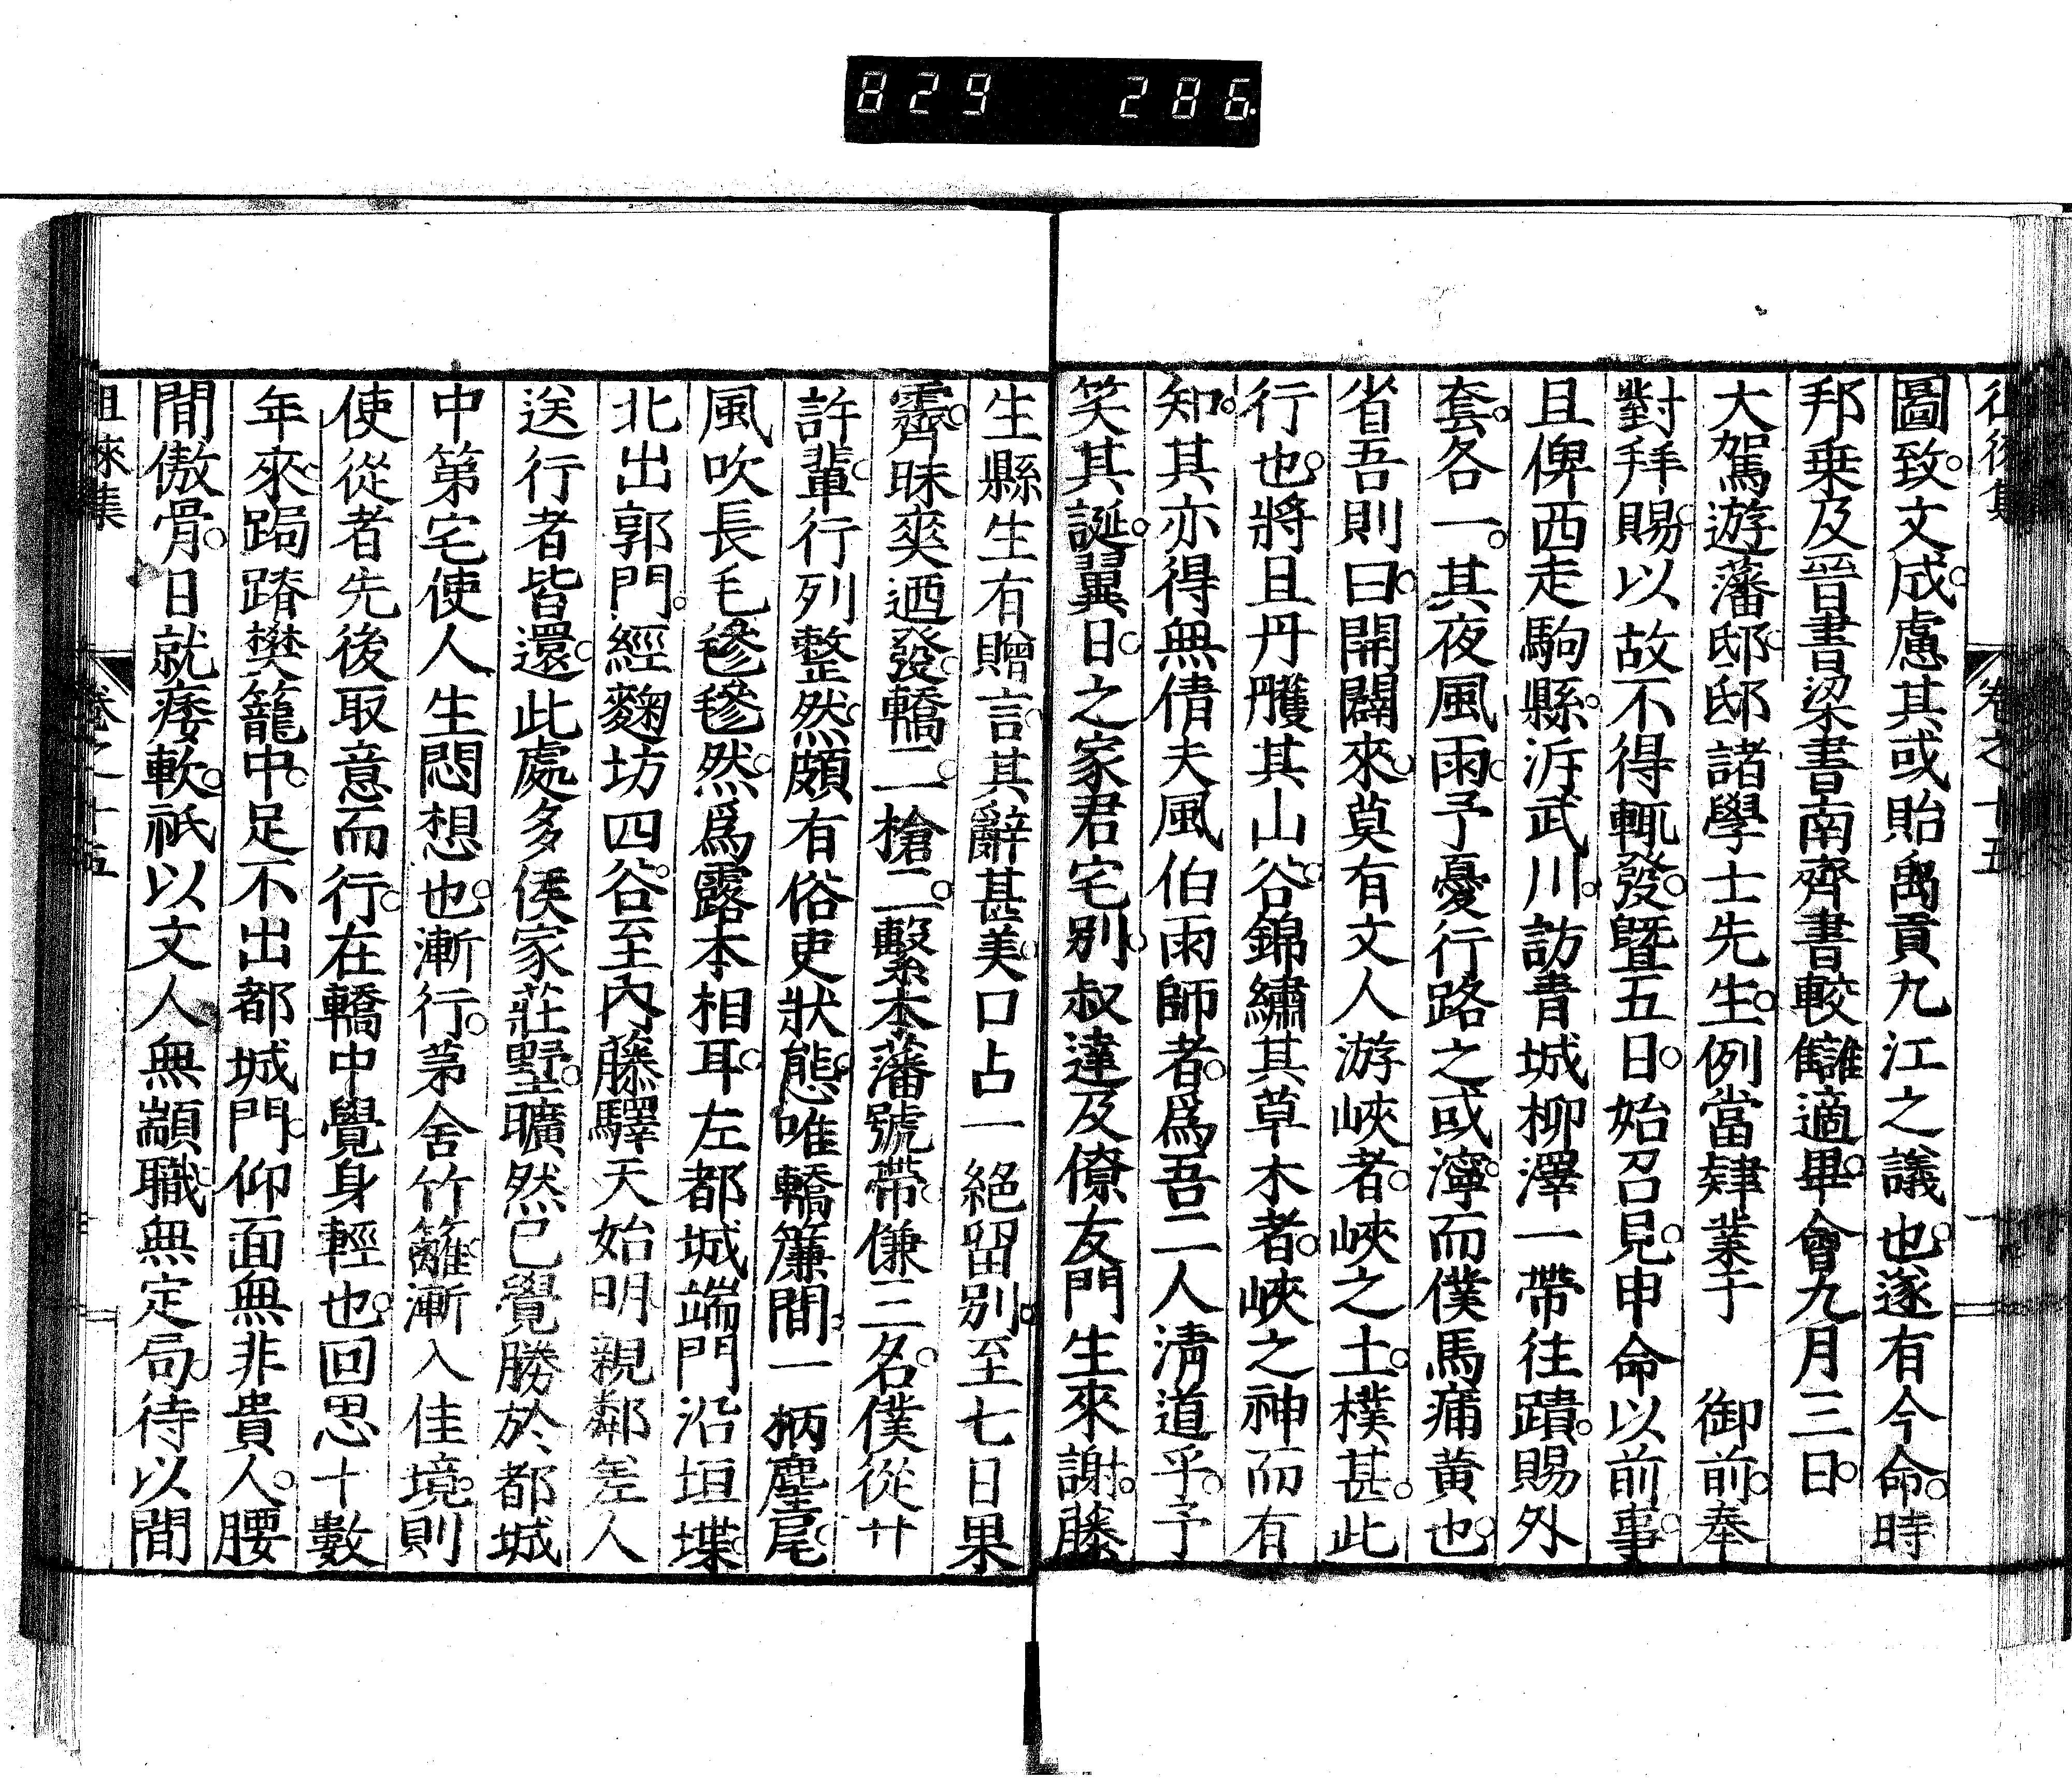 829 286
圖致文成慮其或貽禹貢九江之議也遂有今命時
邦乗及晉書梁書南齊書較讎適畢會九月三日
大駕遊藩邸邸諸學士先生例當肄業于　御前奉
對拜賜以故不得輒發曁五日始召見申命以前事
且俾西走駒縣泝武川訪青城柳澤一帶往蹟賜外
套各一其夜風雨予憂行路之或濘而僕馬痡黄也
省吾則曰開闢來莫有文人游峽者峽之土樸甚此
行也將且丹雘其山谷錦繡其草木者峽之神而有
知其亦得無倩夫風伯雨師者爲吾二人淸道乎予
笑其誕翼日之家君宅別叔達及僚友門生來謝藤
生縣生有贈言其辭甚美口占一絕留別至七日果
霽齊昧爽迺發轎二槍二繫本藩號帶傔三名僕從廿
許輩行列整然頗有俗吏狀態唯轎簾間一柄麈尾
風吹長毛毿毿然爲露本相耳左都城端門沿垣堞
北出郭門經麴坊四谷至內藤驛天始明親鄰差人
送行者皆還此處多侯家莊墅曠然已覺勝於都城
中第宅使人生悶想也漸行茅舍竹籬漸入佳境則
使從者先後取意而行在轎中覺身輕也回思十數
年來跼蹐樊籠中足不出都城門仰面無非貴人腰
間傲骨日就痿軟祇以文人無顓職無定局待以間
徂徠集　卷之十五